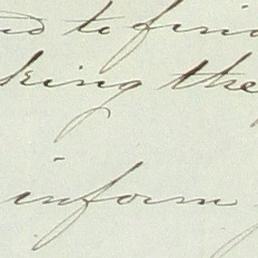 to find
king the
inform